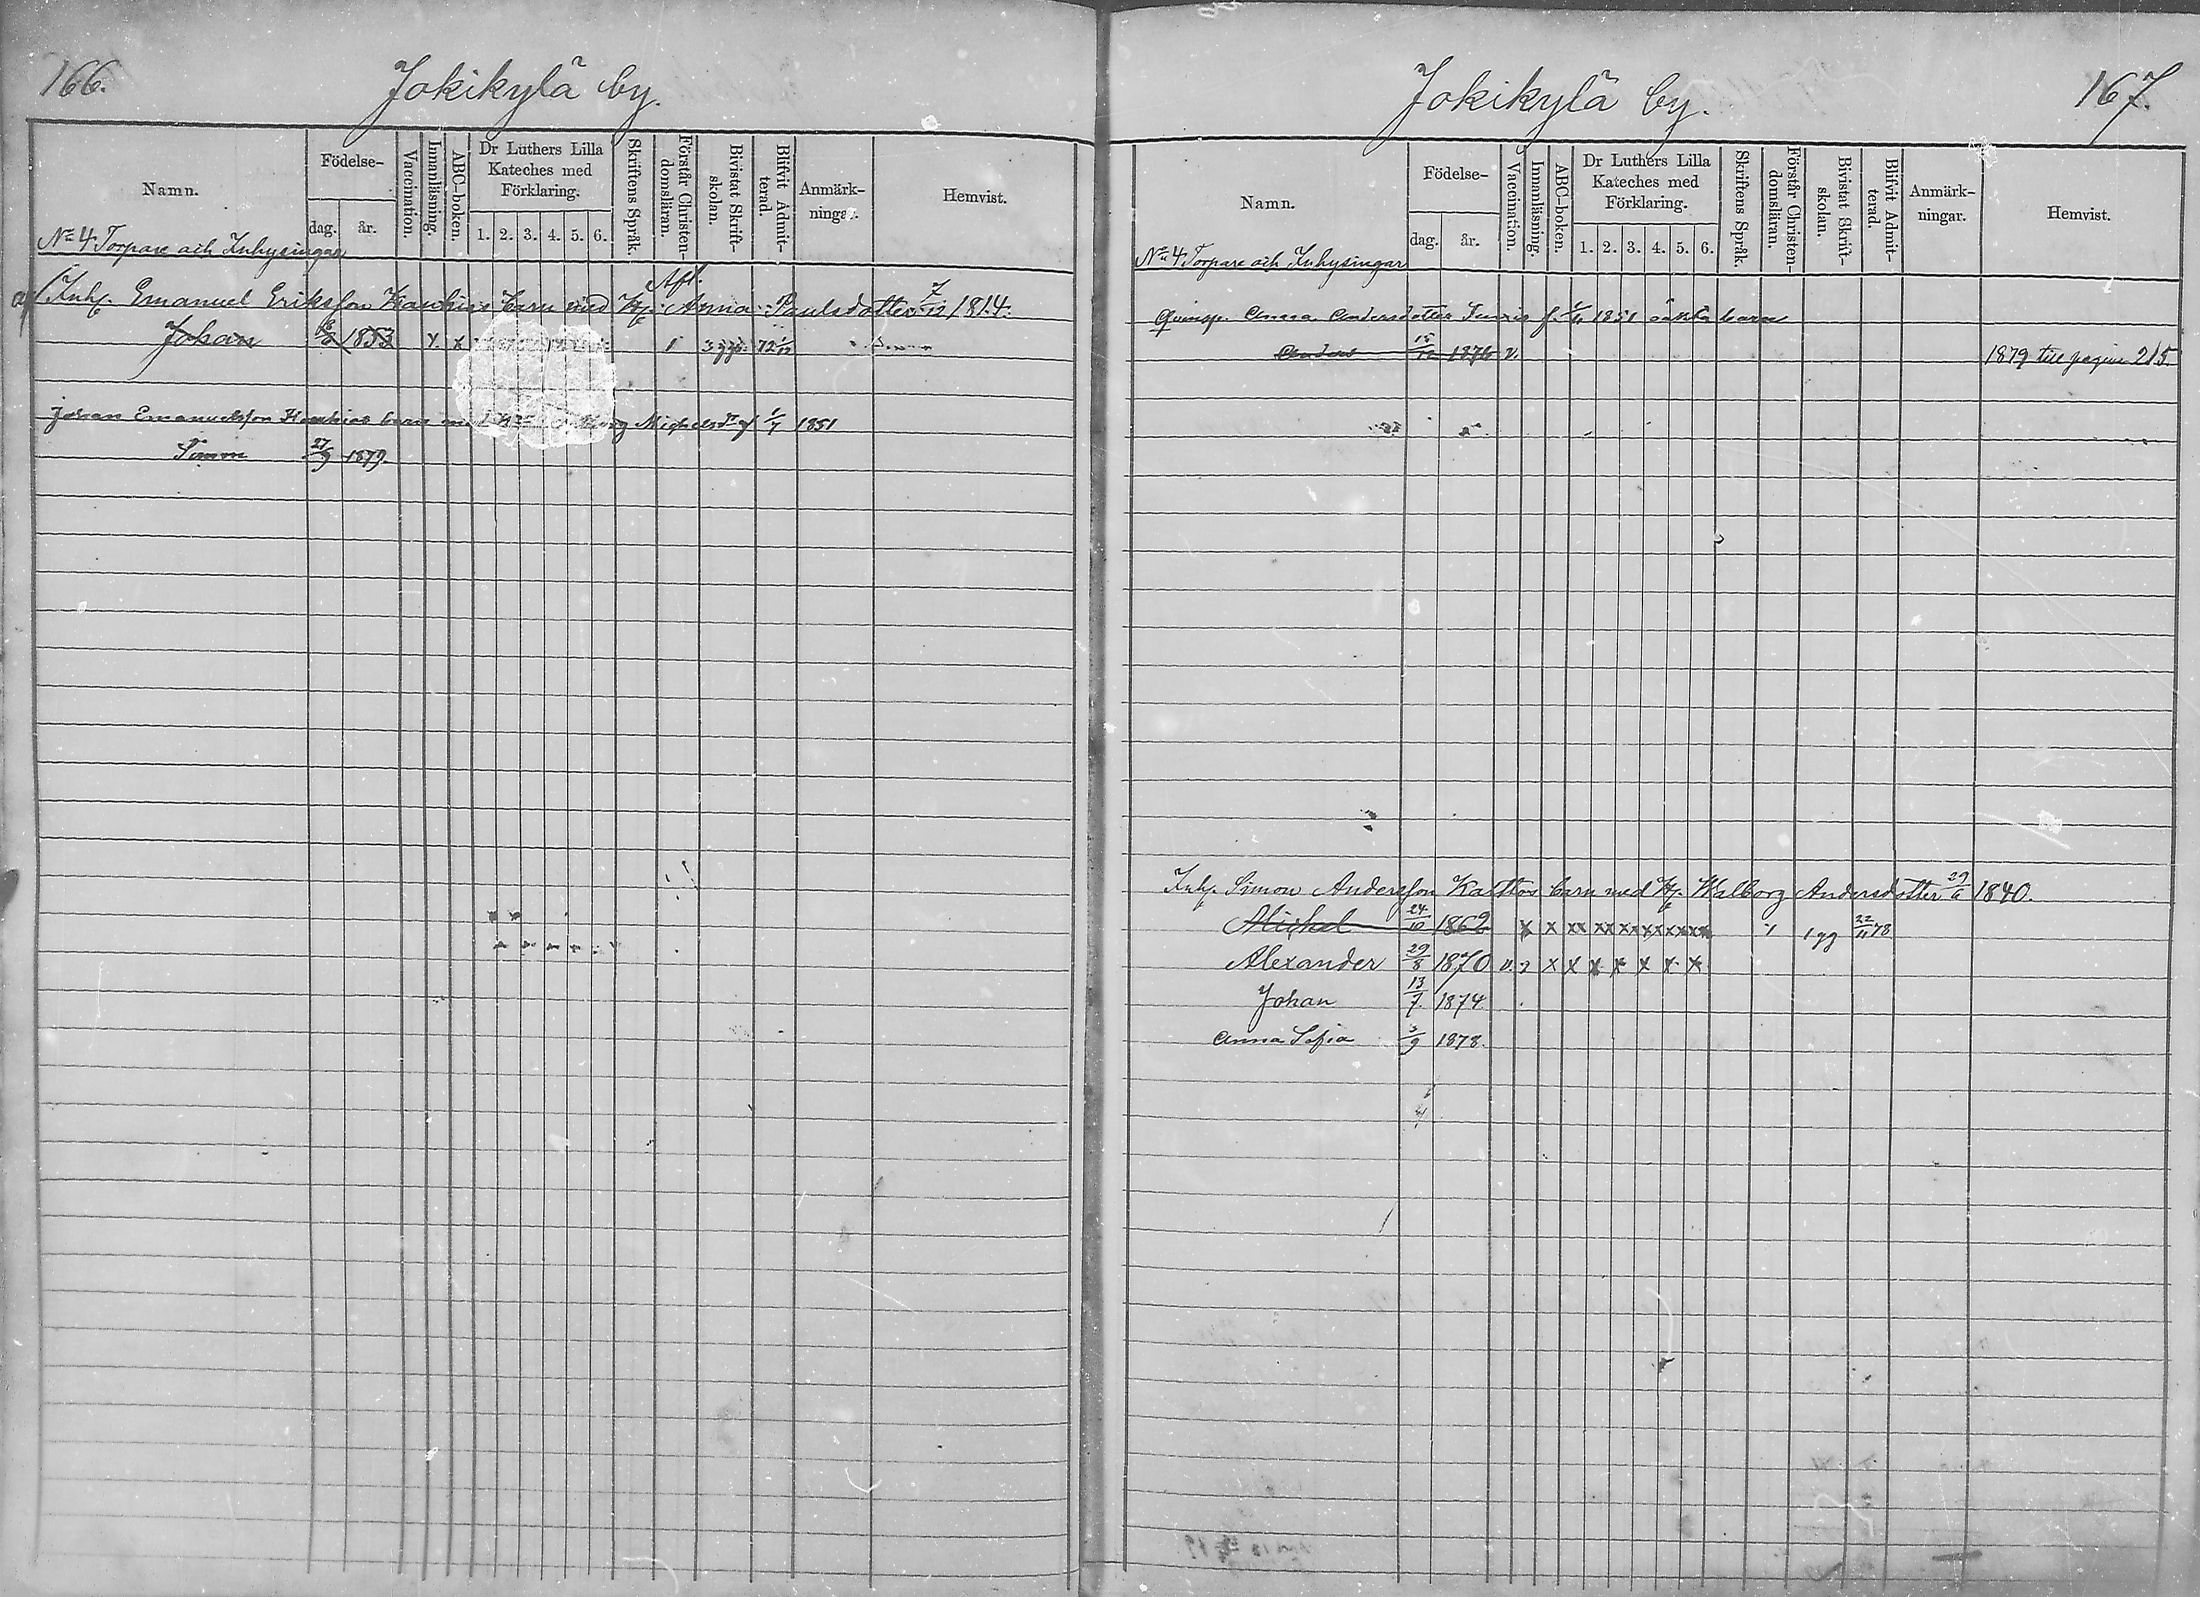 166.
Jokikylä by.
Namn.
Födelse-
dag. år.
Vaccination.
Innanläsning.
ABC-boken.
Dr Luthers Lilla
Kateches med
Förklaring.
1. 2. 3. 4. 5. 6.
Skriftens Språk.
Förstår Christen-
domsläran.
Bivistat Skrift-
skolan.
Blifvit Admit-
terad.
Anmärk-
ningar.
Hemvist.
No 4 Torpare och Inhysingar
Afl.
Inh. Emanuel Eriksson barn med H. Anna Paulsdotter 7/12 1814.
Johan 1853 x x 1 3 ggr
Johan Emanuelsson barn Michelsdr 1/7 1851
Simon 27/9 1879.
Jokikylä by.
167.
Namn.
Födelse-
dag. år.
Vaccination.
Innanläsning.
ABC-boken.
Dr Luthers Lilla
Kateches med
Förklaring.
1. 2. 3. 4. 5. 6.
Skriftens Språk.
Förstår Christen-
domsläran.
Bivistat Skrift-
skolan.
Blifvit Admit-
terad.
Anmärk-
ningar.
Hemvist.
No 4 Torpare och Inhysingar
Qvinsp. Anna Andersdotter f. 1851 oäkta barn
Anders 15/12 1876 v. 1879 till pagina 215
Inh. Simon Andersson barn med H. Walborg Andersdotter 29/6 1840.
Michel 24/10 1862 x x xx xx xx xx xx xx 1 1 gg 22/11 78
Alexander 29/8 1870 v. x x x x x x x
Johan 13/7 1874
Anna Sofia 3/9 1878.